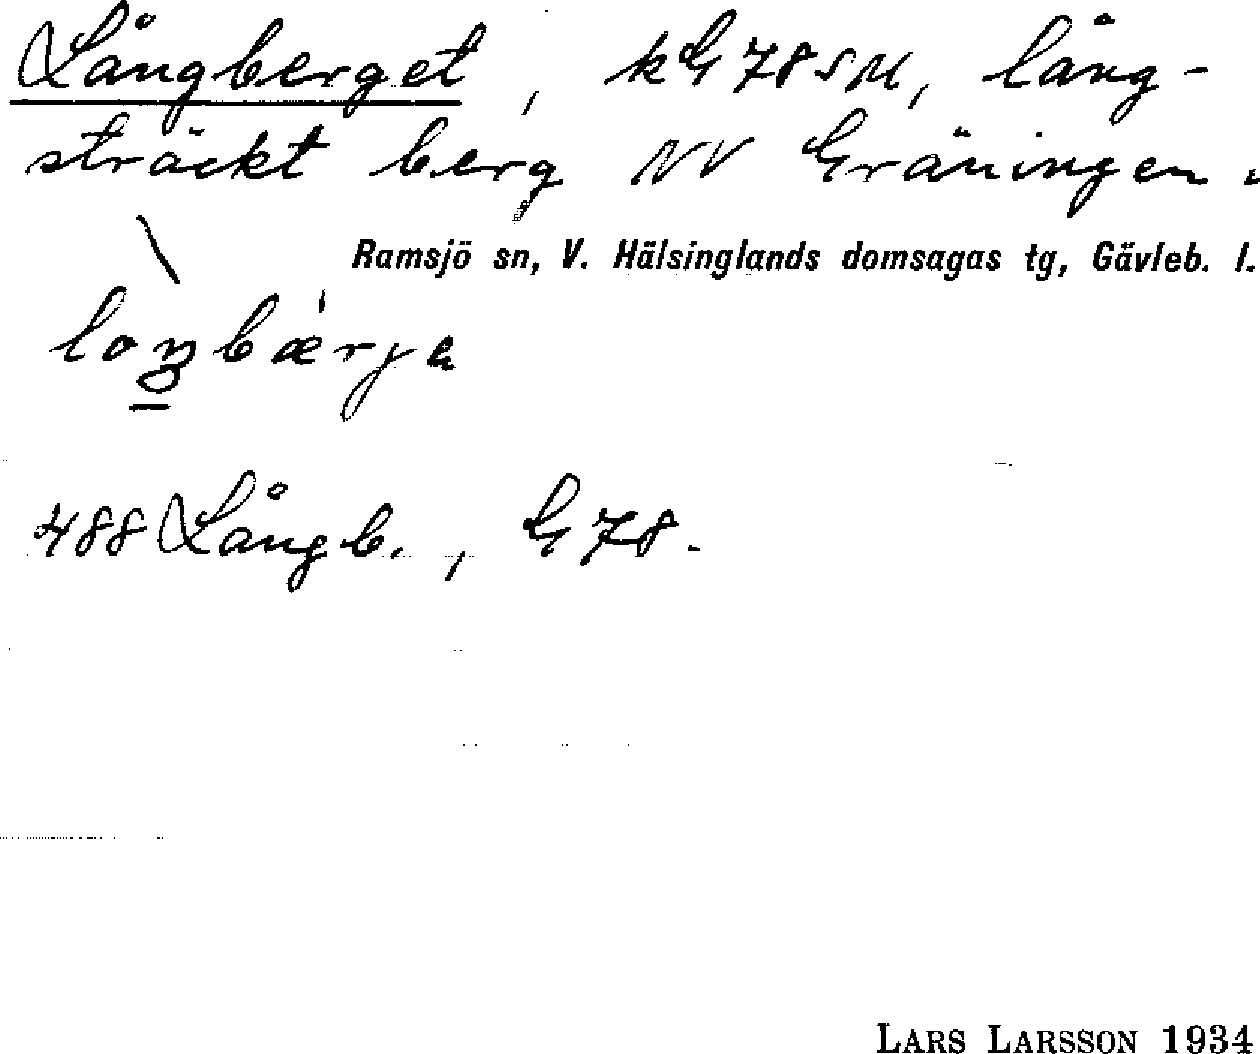 Långberget, kG78SM, lång-
sträckt berg NV Gräningen.
Ramsjö sn, V. Hälsinglands domsagas tg, Gävleb. l.
488 Långb., G78.
LARS LARSSON 1934